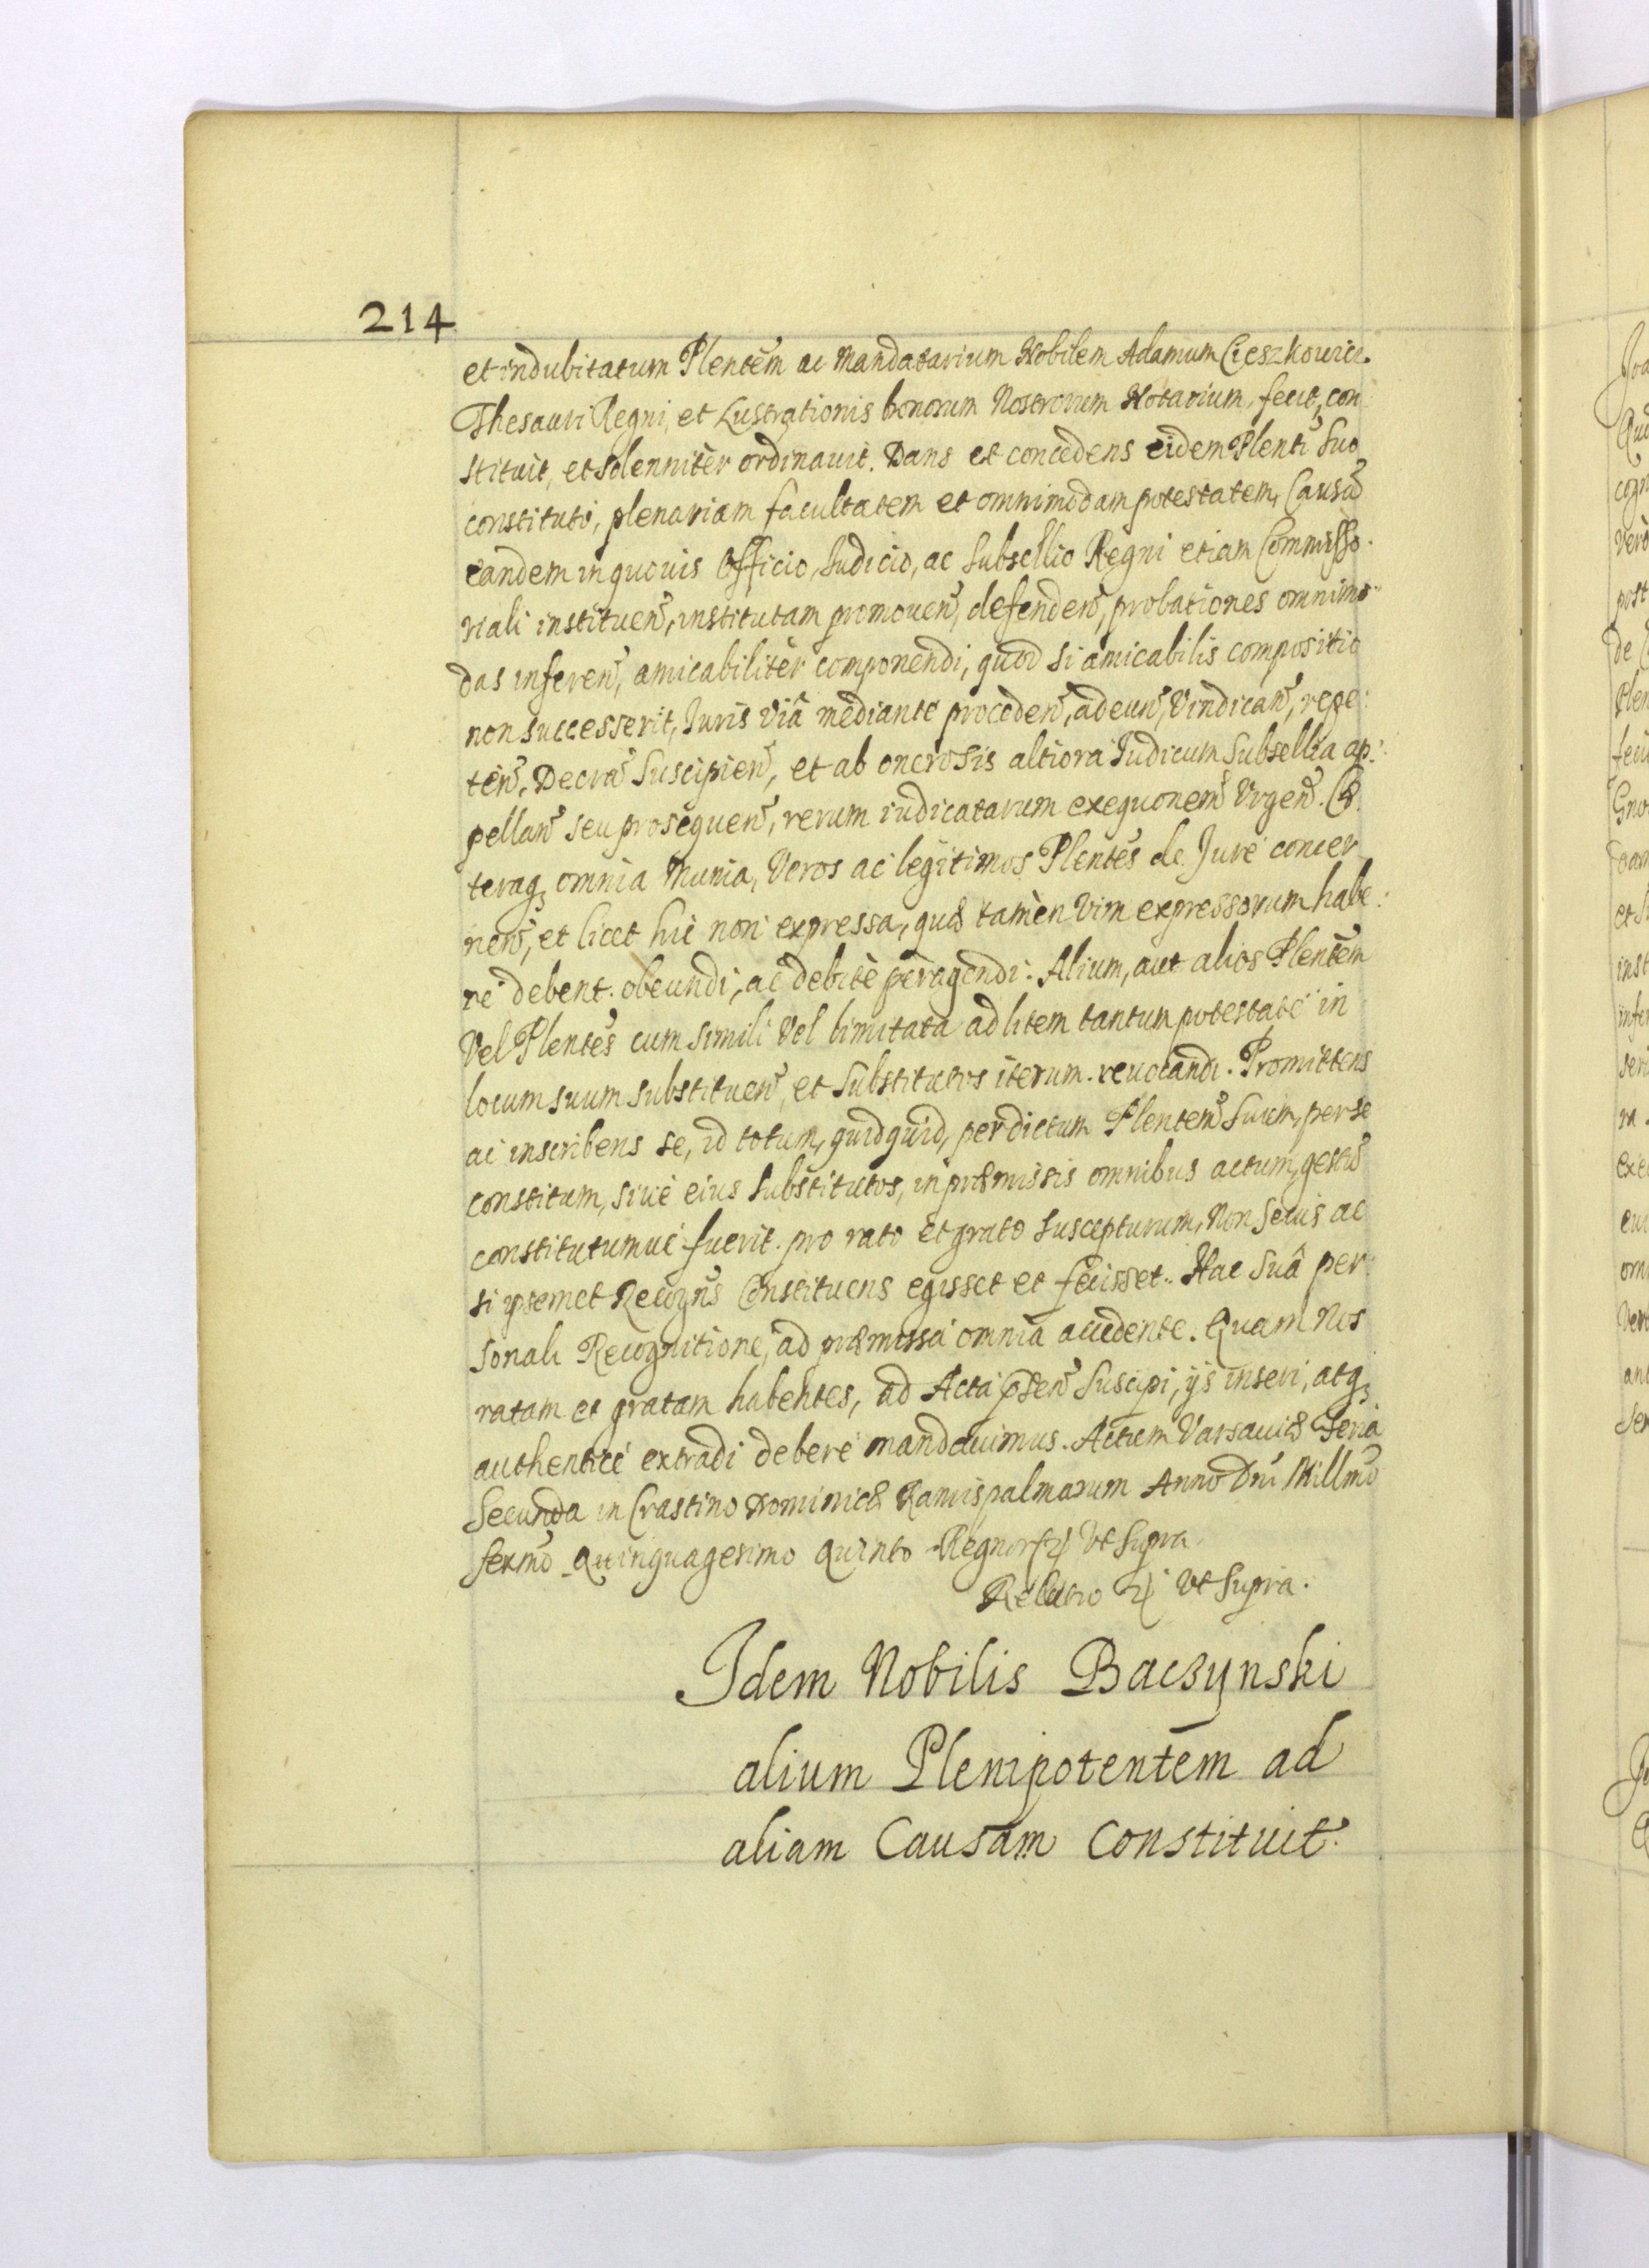 214
et indubitatum Plentẽm ac Mandatarium Nobilem Adamum Cieszkowicz.
Thesauri Regni, et Lustrationis bonorum Nostrorum Notarium, fecit, con
stituit, et solenniter ordinauit. Dans et concedens eidem Plenti Suo
constituto, plenariam facultatem et omnimodam potestatem, Causã
eandem in quouis Officio, Iudicio, ac Subsellio Regni etiam Commisso.
riali instituen̄, institutam promouen̄, defenden̄, probationes omnimo.
das inferen̄, amicabiliter componendi, quod si amicabilis compositio
non successerit, Iuris viâ mediante proceden̄, adeun̄, Vindican̄, repe:
ten̄, Decra̅ Suscipien̄, et ab onerosis altiora Iudicum Subsellia ap:
pellan̄ seu prosequen̄, rerum iudicatarum exequonem̄ Vrgen̄. Cæ
teraq; omnia Munia, Veros ac legitimos Plentes̄ de Jure concer
nen̄, et licet hic non expressa, quæ tamen vim expressorum habe:
re debent. obeundi, ac debite peragendi. Alium, aut alios Plentẽm
Vel Plentes̄ cum simili Vel limitata ad litem tantum potestate in
locum suum substituen̄, et Substitutos iterum reuocandi. Promittens
ac inscribens se, id totum, quidquid, per dictum Plentem̄ Suum, per se
constitum, siue eius Substitutos, in præmissis omnibus actum, gestũ
constitutumue fuerit. pro rato et grato Suscepturum, Non Secus ac
si ipsemet Recogn̄s Constituens egisset et fecisset. Hac Suâ per
sonali Recognitione, ad præmissa omnia accedente. Quam Nos
ratam et gratam habentes, ad Acta p̄sen̄ Suscipi, ijs inseri, atq;
authentice extradi debere mandauimus. Actum Varsauiæ Feria
Secunda in Crastino Dominicæ Ramispalmarum Anno Dn̄i Millm̄o
Sexm̄o Quinquagesimo Quinto Regnor[um] Vt Supra
Relatio Vt Supra.
Idem Nobilis Baczynski
alium Plenipotentem ad
aliam Causam Constituit.